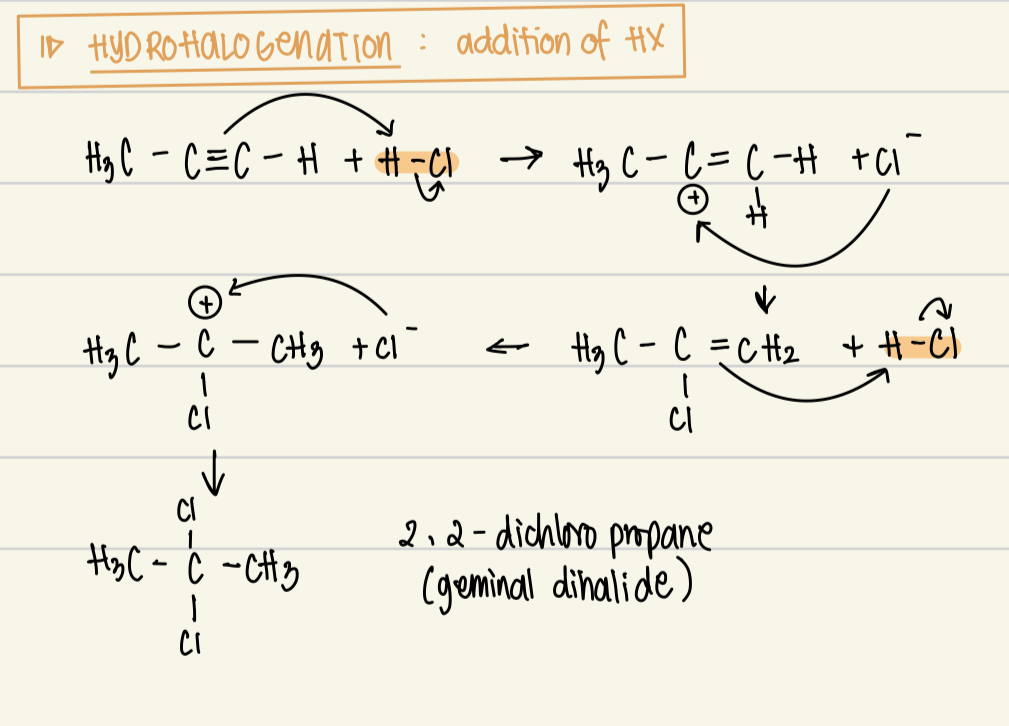 1▷ HYDROHALOGENATION : addition of HX
H₃C – C≡C – H + H–Cl → H₃C – C = C – H + Cl⁻
⊕ H
⊕ ↓
H₃C – C – CH₃ + Cl⁻ ← H₃C – C = CH₂ + H–Cl
Cl Cl
↓
Cl
H₃C – C – CH₃
Cl
2,2-dichloro propane
(geminal dihalide)